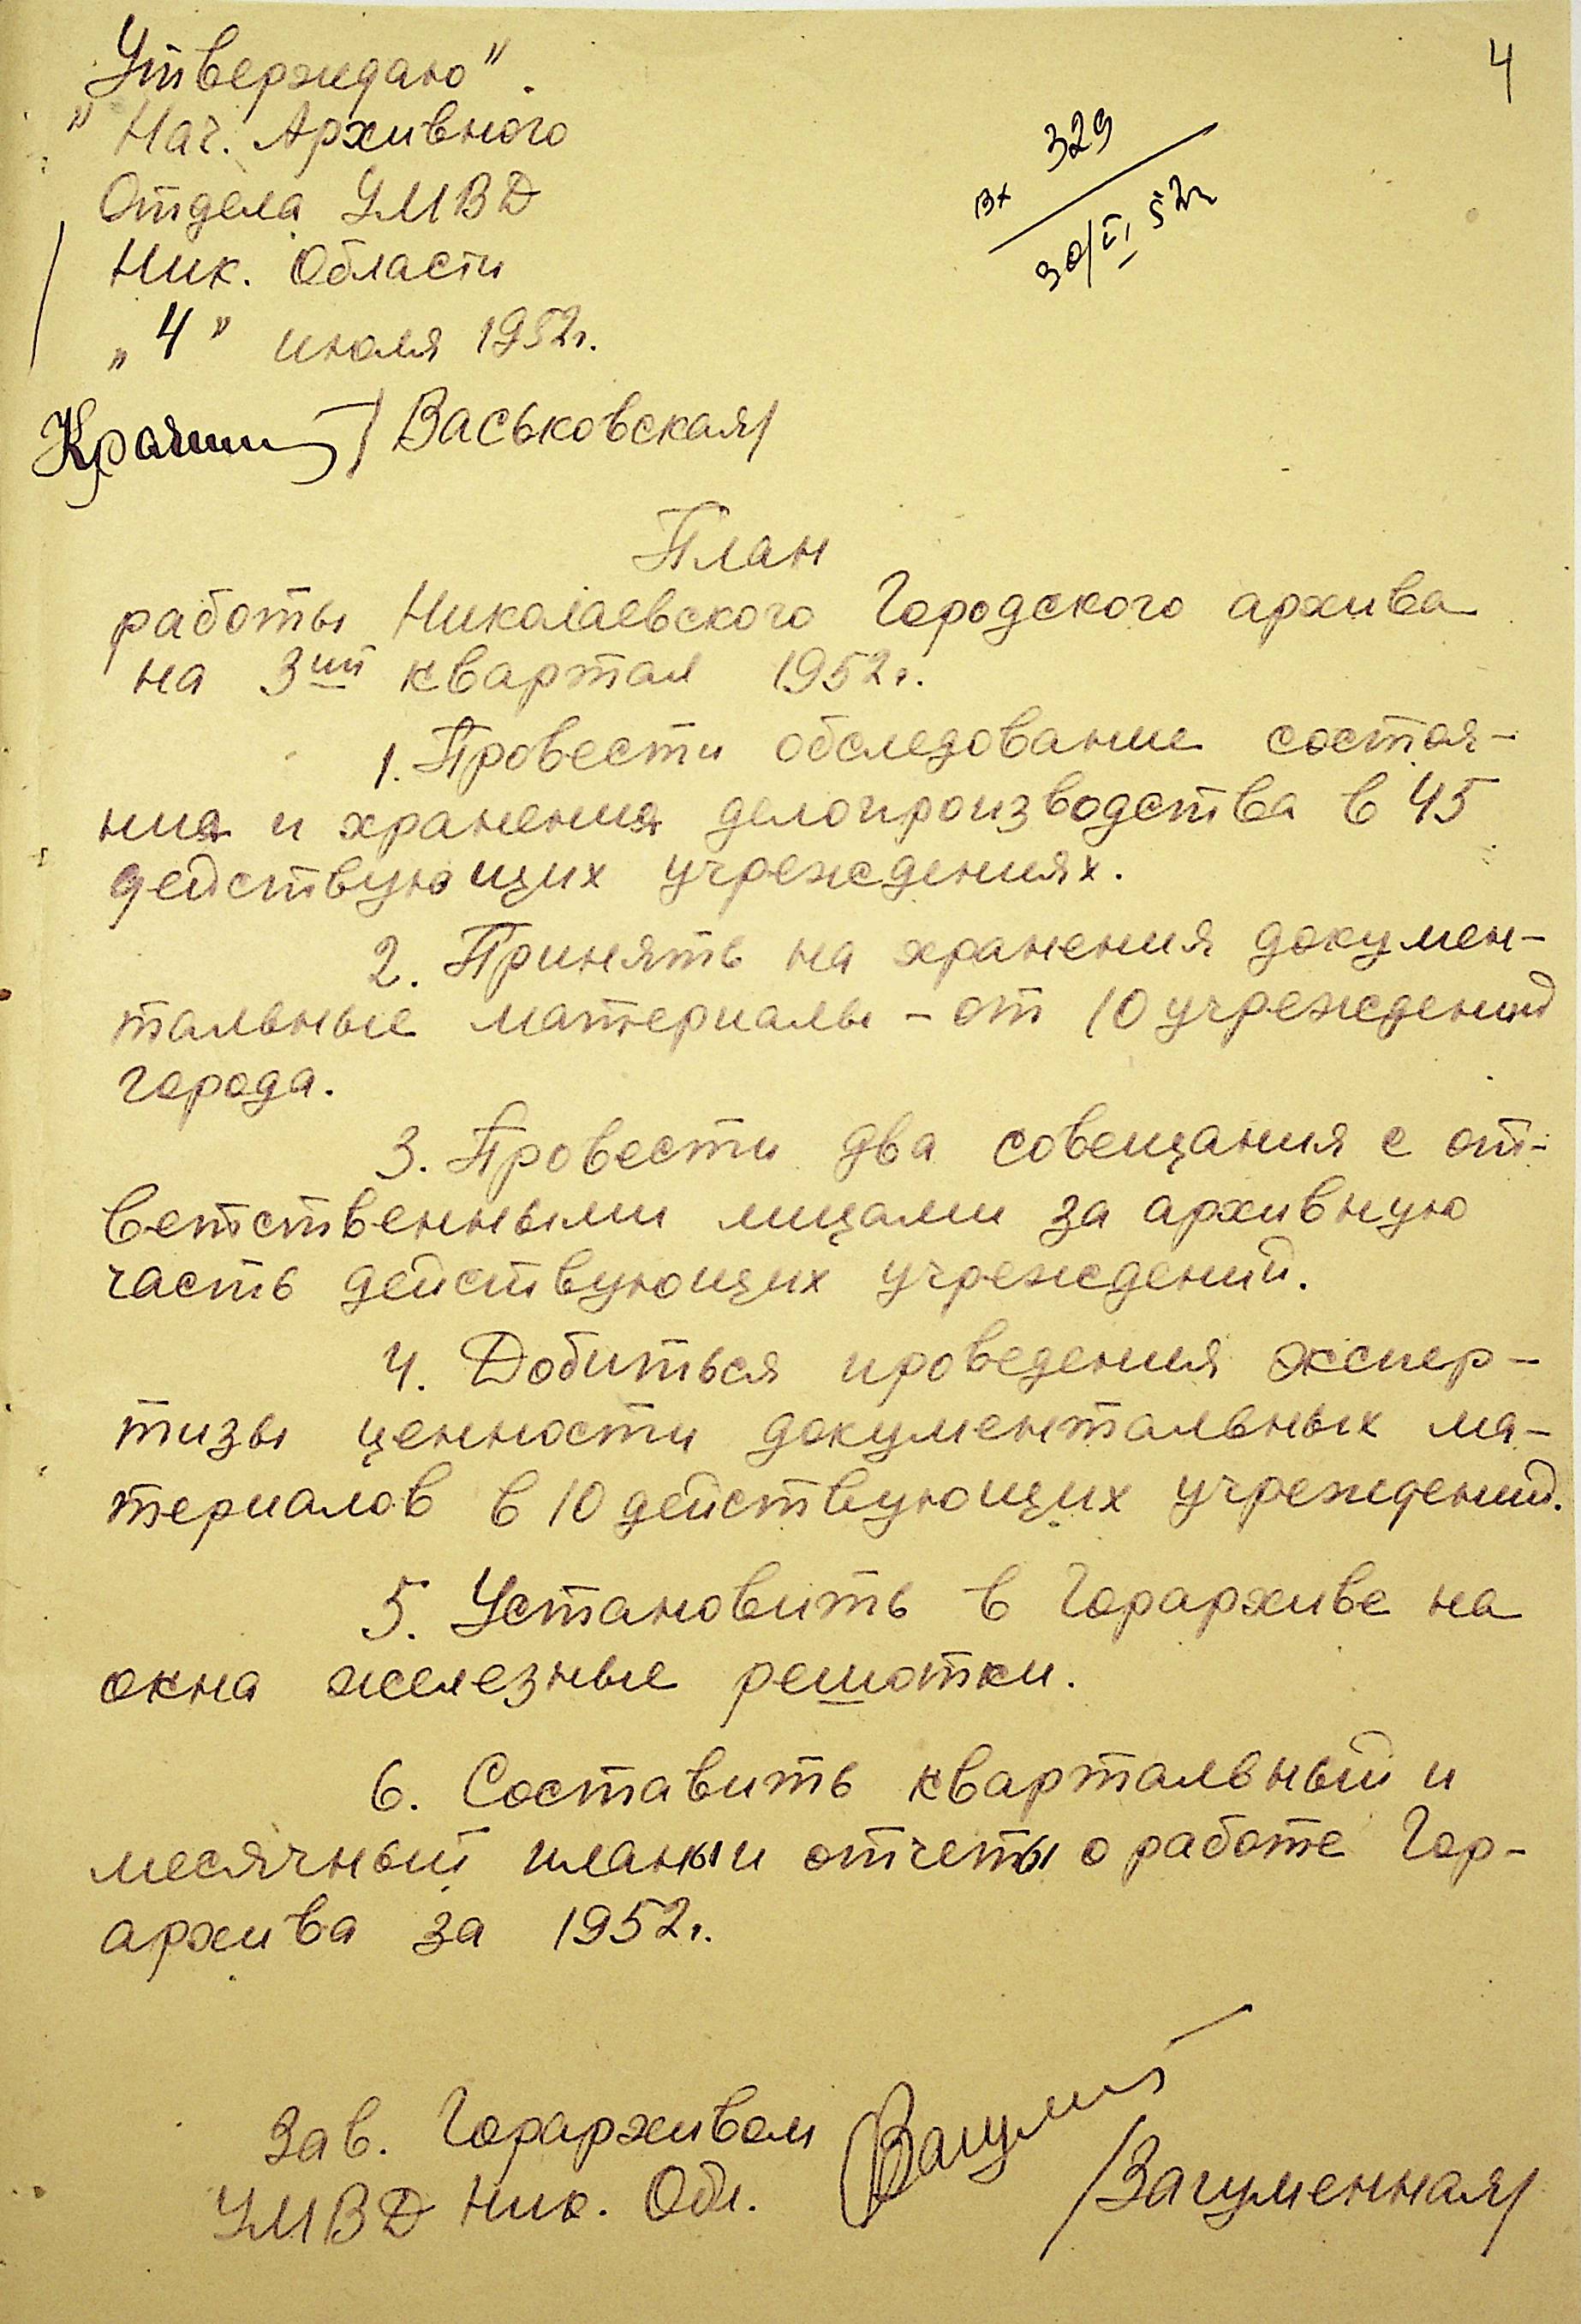 4
Утверждаю".
" Нач. Архивного
Отдела УМВД
Ник. Области
„4" июля 1952г.
/Васьковская/
вх 329
30/VI 52г
План
работы Николаевского Городского архива
на 3ий квартал 1952г.
1. Провести обследование состоя-
ния и хранения делопроизводства в 45
действующих учреждениях.
2. Принять на хранения докумен-
тальные материалы - от 10 учреждений
города.
3. Провести два совещания с от-
ветственными лицами за архивную
часть действующих учреждений.
4. Добиться проведения экспер-
тизы ценности документальных ма-
териалов в 10 действующих учреждений.
5. Установить в Горархиве на
окна железные решотки.
6. Составить квартальный и
месячный планы и отчеты о работе Гор-
архива за 1952г.
Зав. Горархивом
УМВД Ник. Обл.
/Загуменная/